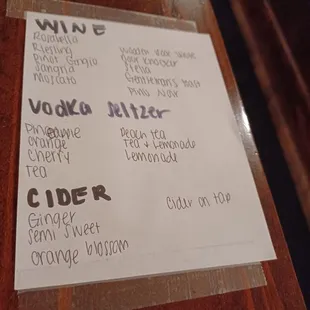 WINE
Rosabella
Riesling
Pinot Grigio
Sangria
Moscato
Door Knocker
Stella
Gentleman's
Pino Noir
Vodka Seltzer
Pineapple
Orange
Cherry
Tea
Peach tea
Tea + Lemonade
Lemonade
CIDER
Ginger
Semi Sweet
Orange blossom
Cider on tap